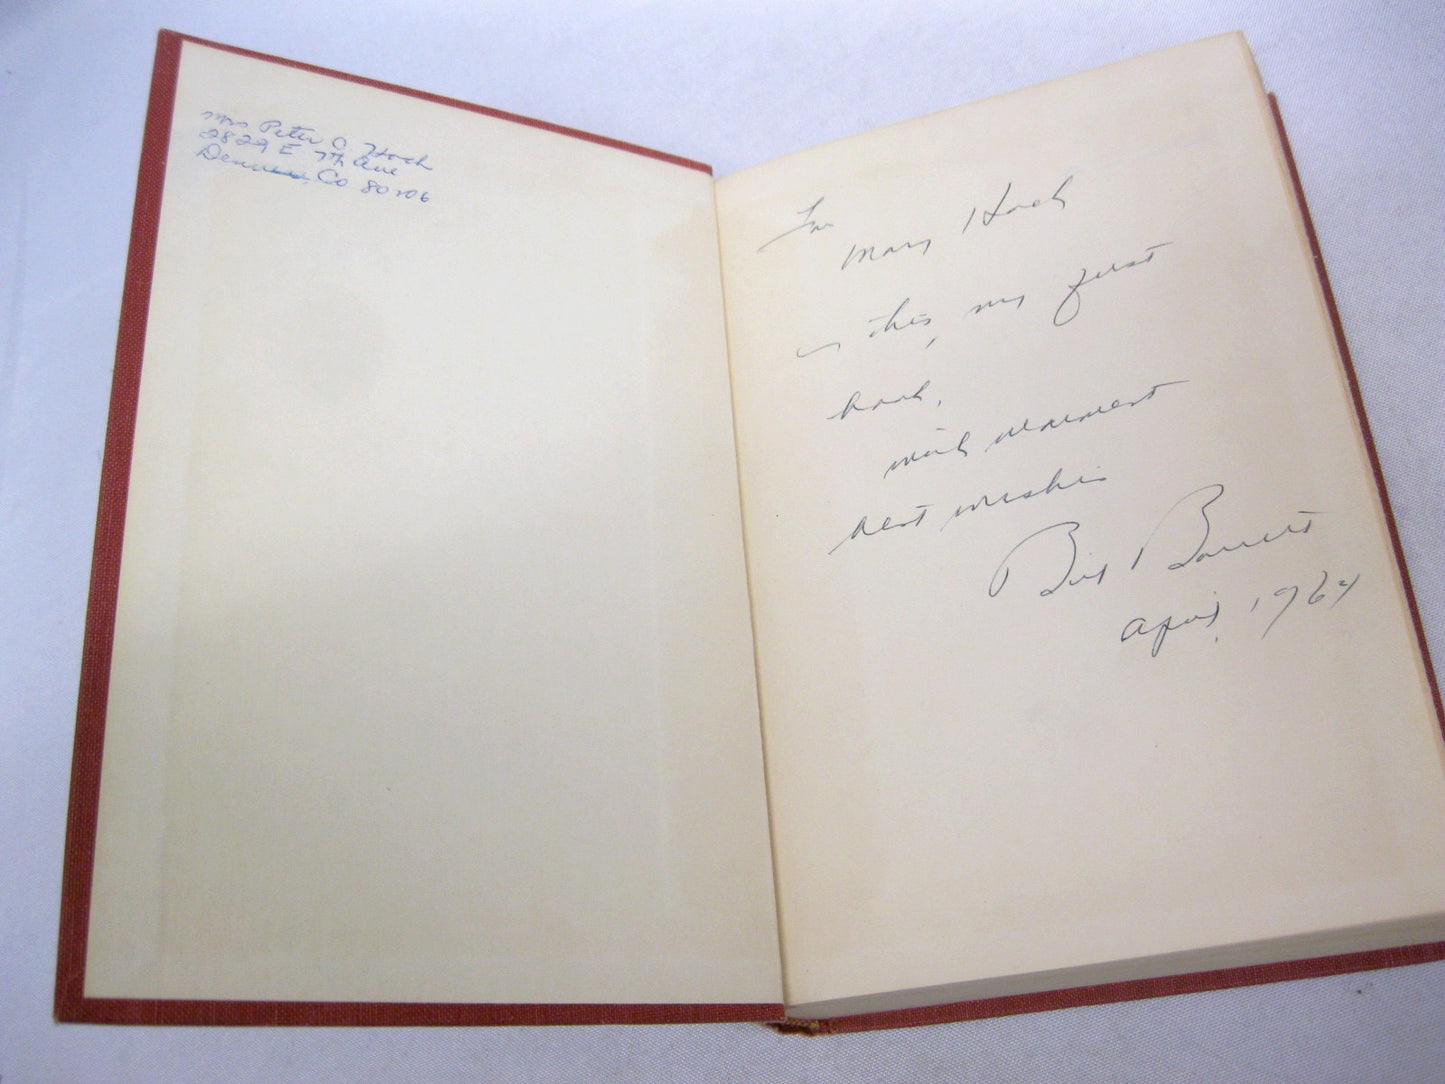 Mrs Peter C. Hoch
2829 E 7th Ave
Denver, Co 80206
For
Mary Hoch
this, my first
book,
with warmest
best wishes
Bill Barrett
April, 1964